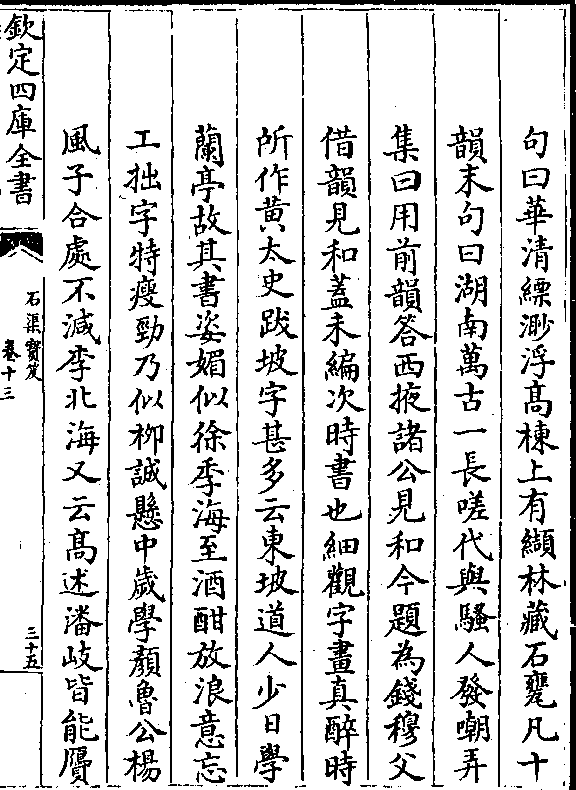 句曰華清縹渺浮髙棟上有纈林藏石甕凡十
韻末句曰湖南萬古一長嗟代與騷人發嘲弄
集曰用前韻答西掖諸公見和今題為錢穆父
借韻見和蓋未編次時書也細觀字畫真醉時
所作黄太史跋坡字甚多云東坡道人少日學
蘭亭故其書姿媚似徐季海至酒酣放浪意忘
工拙字特瘦勁乃似柳誠懸中歲學顔魯公楊
風子合處不減李北海又云髙述潘岐皆能贋
欽定四庫全書
石渠寳笈
卷十三
三十五